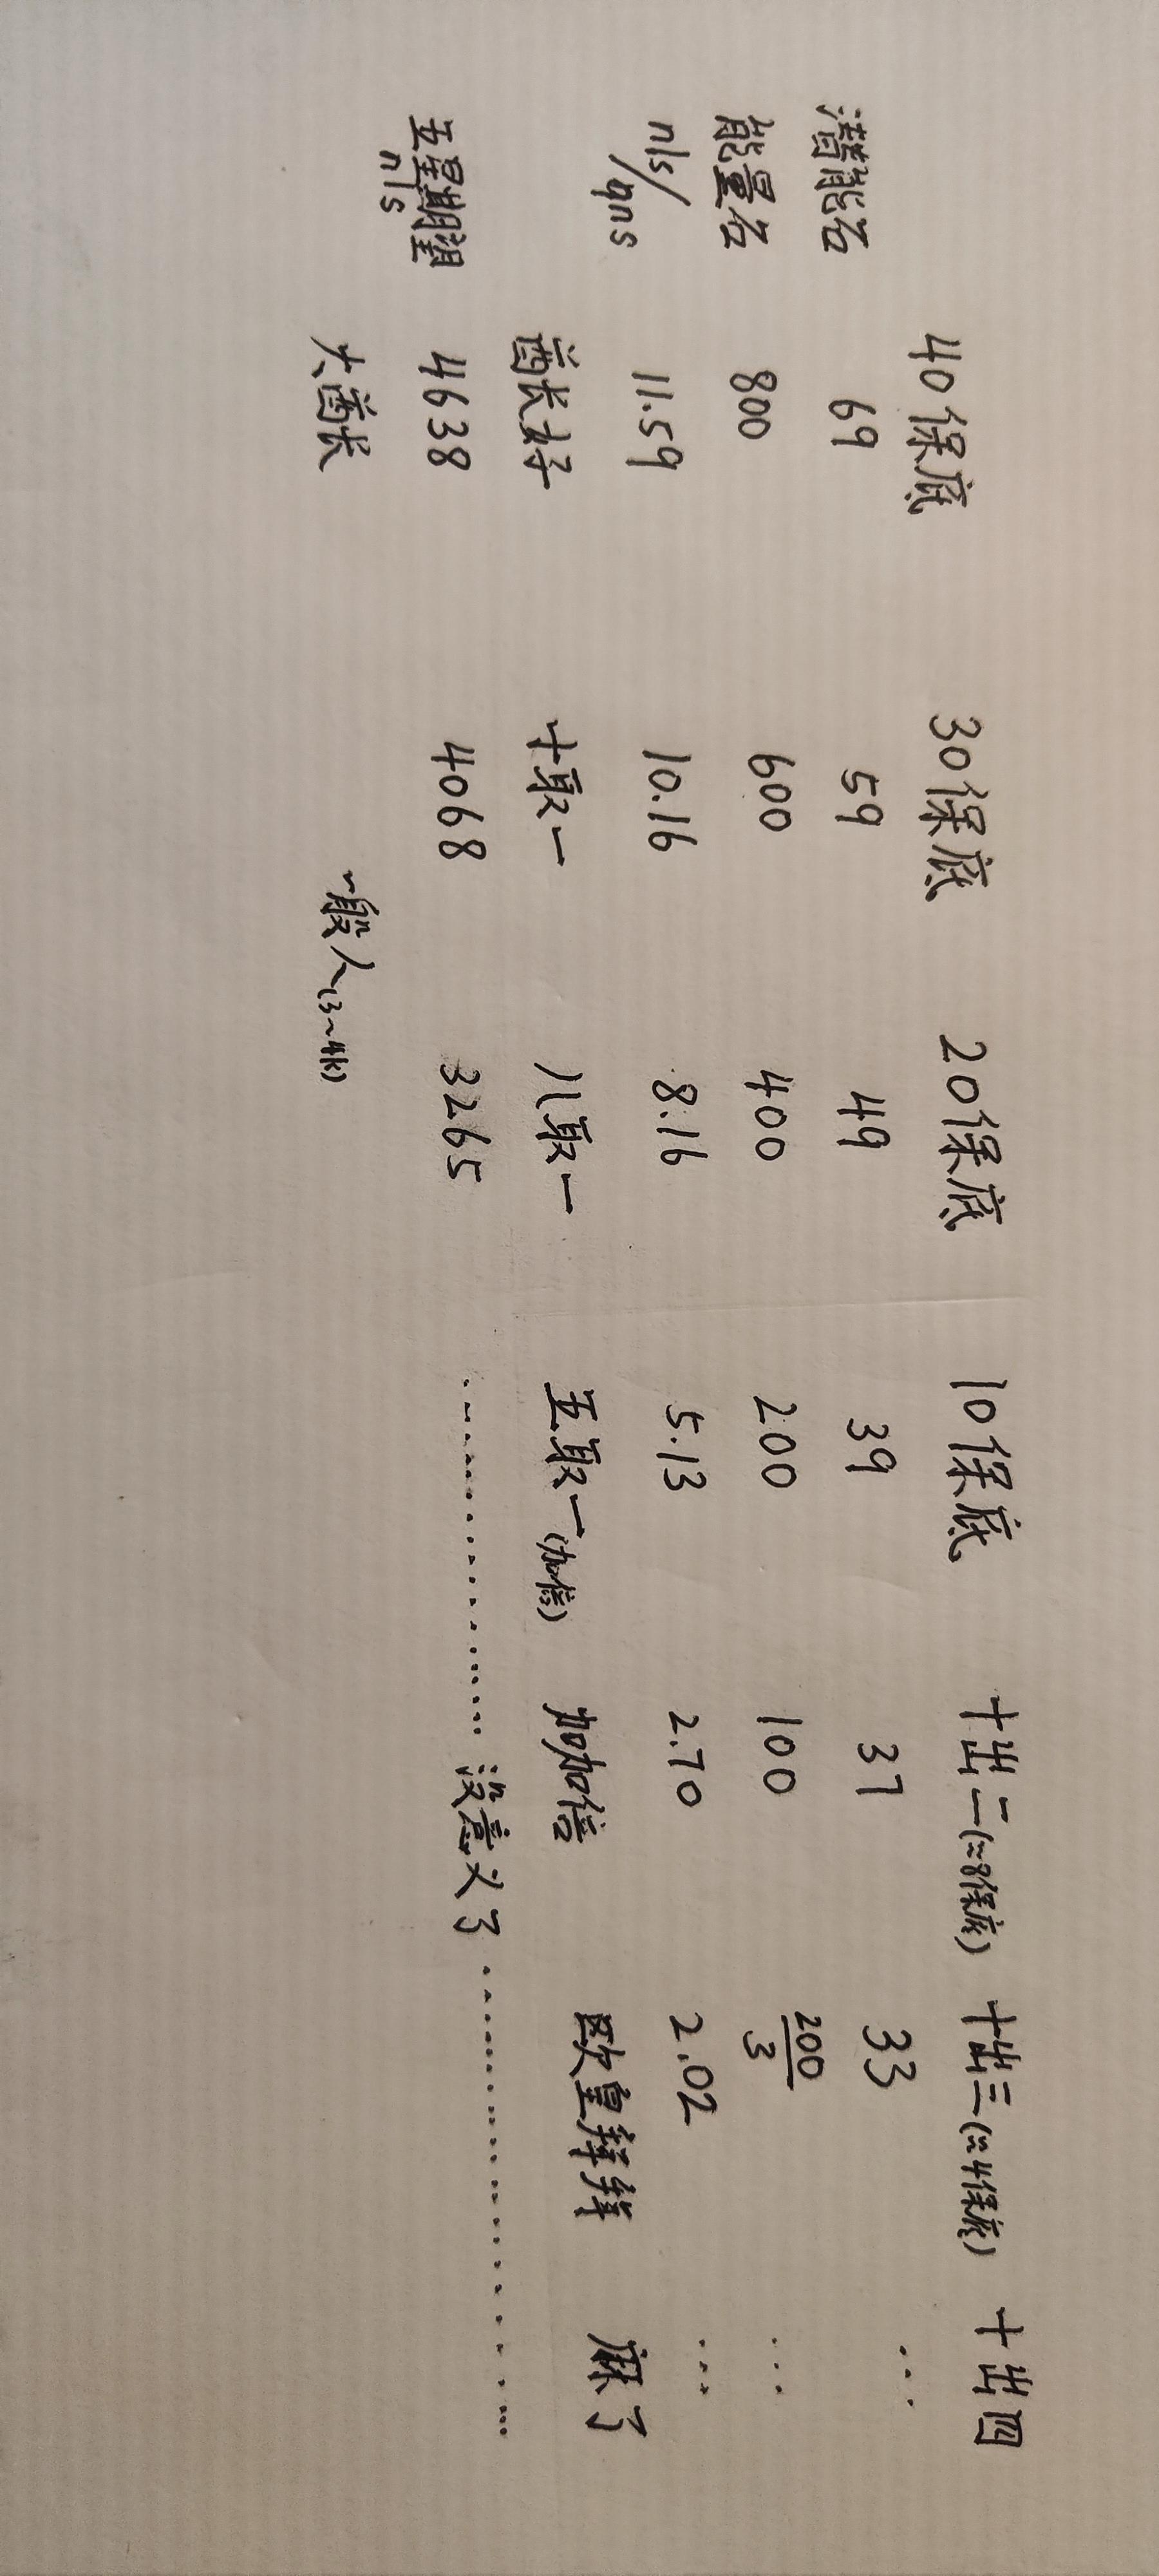 40保底 30保底 20保底 10保底 十出二(≈8保底) 十出三(≈4保底) 十出四
潜能石 69 59 49 39 37 33 ...
能量石 800 600 400 200 100 200/3 ...
nls/qns 11.59 10.16 8.16 5.13 2.70 2.02 ...
酋长好 十取一 八取一 五取一(加倍) 加加倍 欧皇拜拜 麻了
五星期望 nls 4638 4068 3265 ......没意义了......
大酋长 一般人(3~4k)